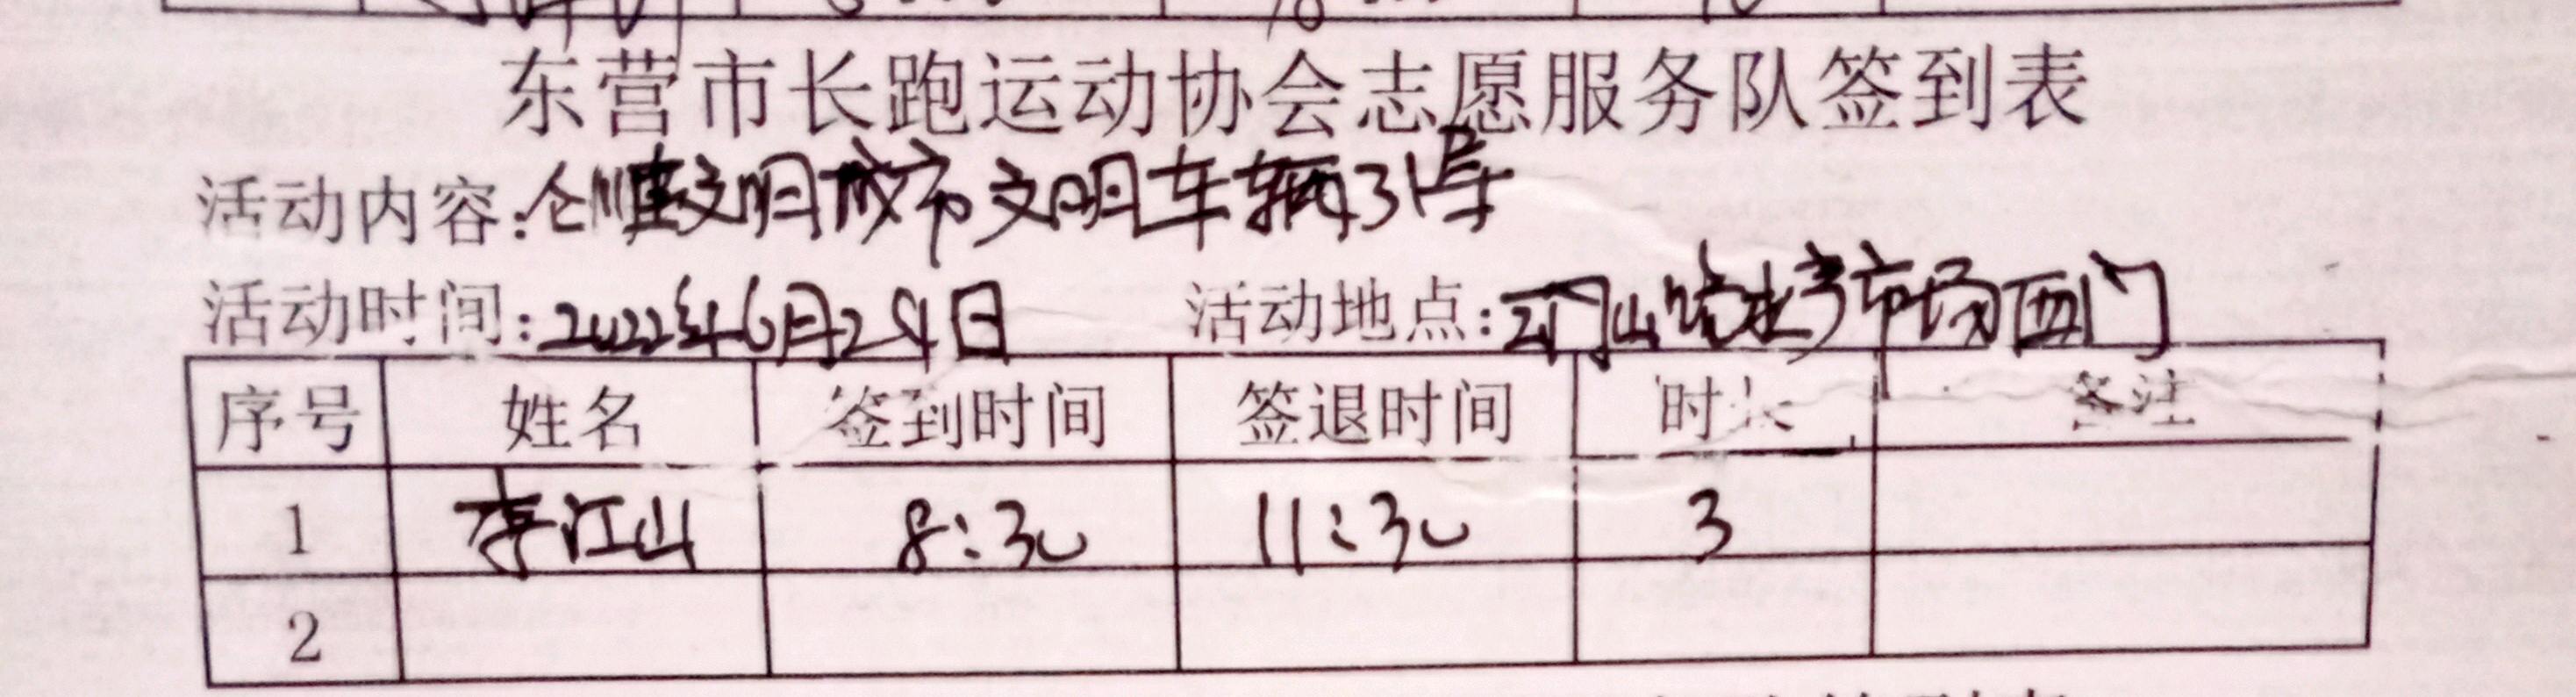 东营市长跑运动协会志愿服务队签到表
活动内容:创建文明城市文明车辆引导
活动时间:2022年6月24日 活动地点:市场西门
序号 姓名 签到时间 签退时间 时长 备注
1 李江山 8:30 11:30 3
2